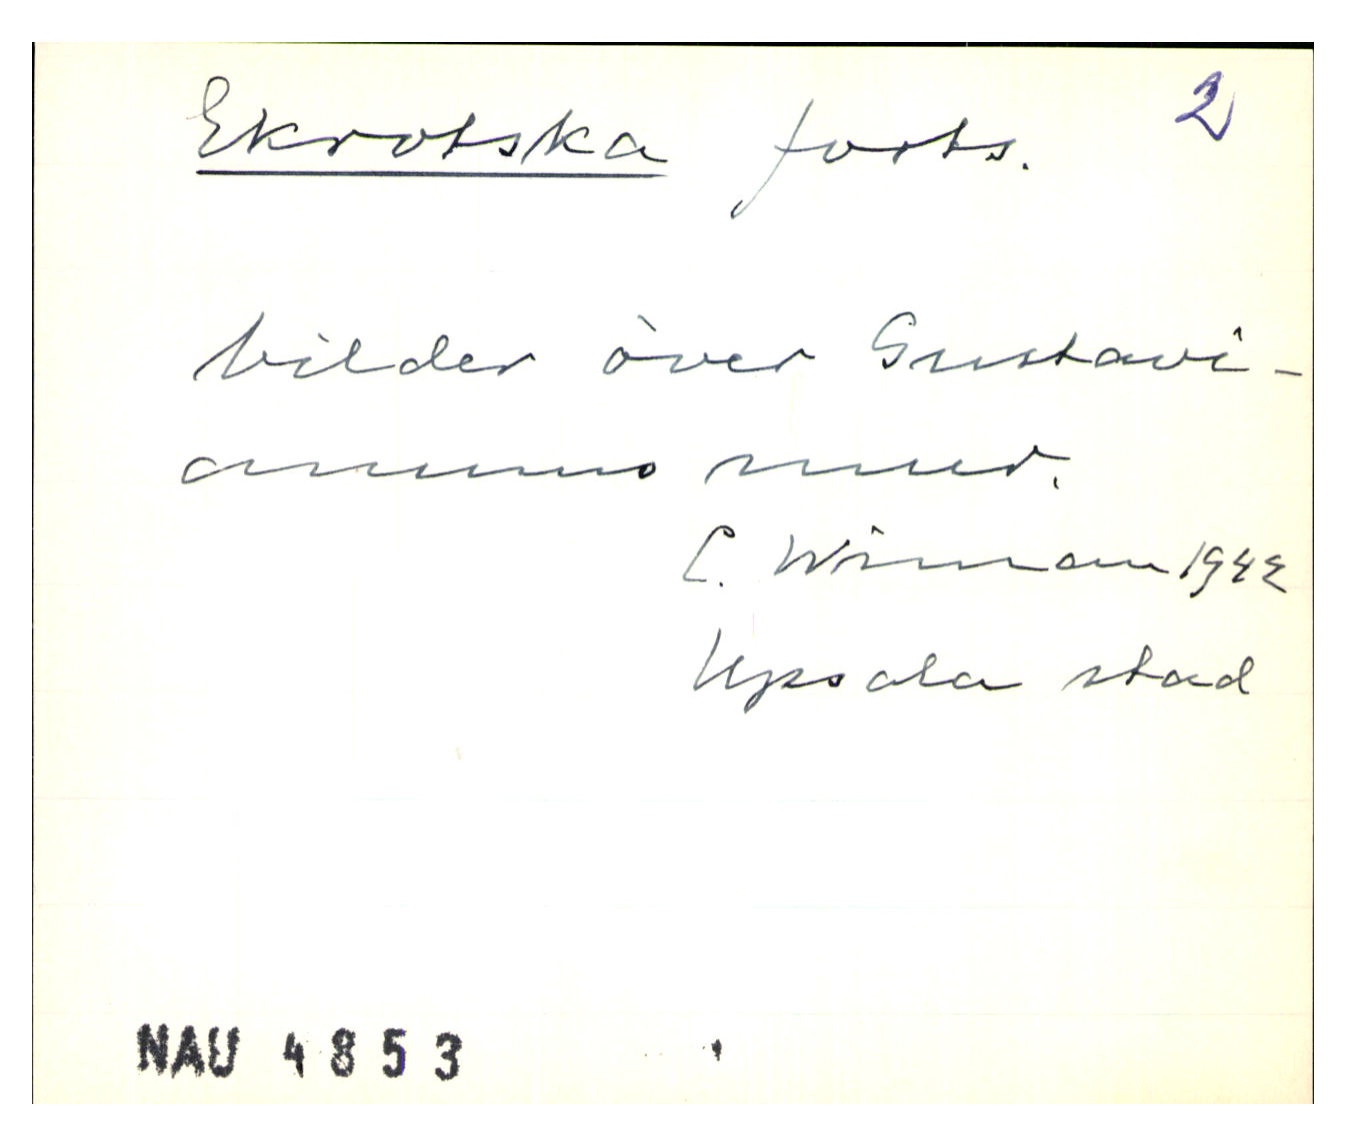 Ekrotska forts. 2
bilder över Gustavi-
anums mur.
C. Wiman 1942
Upsala stad
NAU 4853